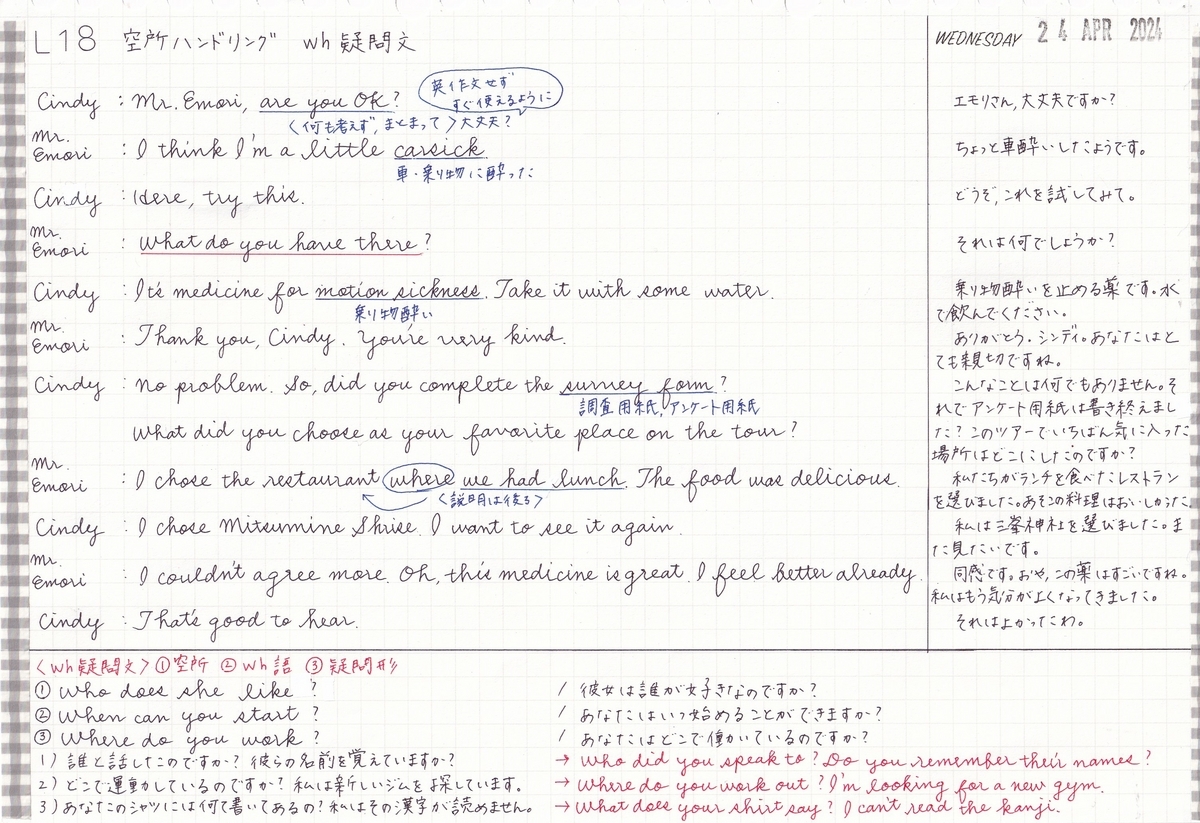 L18 空所ハンドリング wh疑問文
WEDNESDAY 24 APR 2024
英作文せず
すぐ使えるように
Cindy : Mr. Emori, are you OK?
〈何も考えず, まとまって〉大丈夫?
エモリさん, 大丈夫ですか?
Mr. Emori : I think I'm a little carsick.
車・乗り物に酔った
ちょっと車酔いしたようです。
Cindy : Here, try this.
どうぞ, これを試してみて。
Mr. Emori : What do you have there?
それは何でしょうか?
Cindy : It's medicine for motion sickness. Take it with some water.
乗り物酔い
乗り物酔いを止める薬です。水
で飲んでください。
Mr. Emori : Thank you, Cindy. You're very kind.
ありがとう. シンディ。あなたはと
ても親切ですね。
Cindy : No problem. So, did you complete the survey form?
調査用紙, アンケート用紙
What did you choose as your favorite place on the tour?
こんなことは何でもありません。そ
れでアンケート用紙は書き終えまし
た? このツアーでいちばん気に入った
場所はどこにしたのですか?
Mr. Emori : I chose the restaurant where we had lunch. The food was delicious.
〈説明は後ろ〉
私たちがランチを食べたレストラン
を選びました。あそこの料理はおいしかった。
Cindy : I chose Mitsumine Shrise. I want to see it again.
私は三峯神社を選びました。ま
た見たいです。
Mr. Emori : I couldn't agree more. Oh, this medicine is great. I feel better already.
同感です。おや, この薬はすごいですね。
私はもう気分がよくなってきました。
Cindy : That's good to hear.
それはよかったわ。
〈wh疑問文〉①空所 ②wh語 ③疑問形
① Who does she like ? / 彼女は誰が好きなのですか?
② When can you start ? / あなたはいつ始めることができますか?
③ Where do you work ? / あなたはどこで働いているのですか?
1) 誰と話したのですか? 彼らの名前を覚えていますか? → Who did you speak to? Do you remember their names?
2) どこで運動しているのですか? 私は新しいジムを探しています。 → Where do you work out? I'm looking for a new gym.
3) あなたのシャツには何て書いてあるの? 私はその漢字が読めません。 → What does your shirt say? I can't read the kanji.